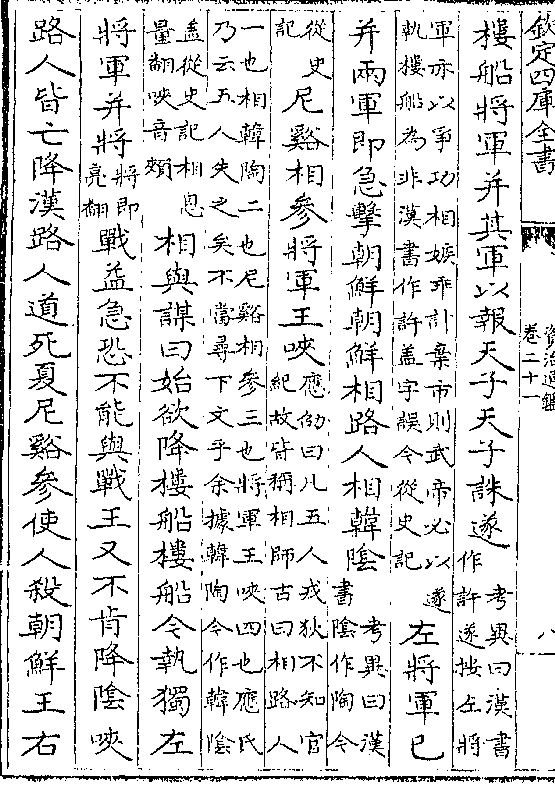 欽定四庫全書
資治通鑑
卷二十一
八
樓船將軍并其軍以報天子天子誅遂考異曰漢書
作許遂按左將
軍亦以爭功相嫉乖計棄市則武帝必以遂
執樓船為非漢書作許盖字誤今從史記左將軍已
并兩軍即急擊朝鮮朝鮮相路人相韓陰考異曰漢
書陰作陶今
從史
記尼谿相參將軍王唊應劭曰凡五人戎狄不知官
紀故皆稱相師古曰相路人
一也相韓陶二也尼谿相參三也將軍王唊四也應氏
乃云五人失之矣不當尋下文乎余據韓陶今作韓陰
盖從史記相息
量翻唊音頰相與謀曰始欲降樓船樓船今執獨左
將軍并將將即
亮翻戰益急恐不能與戰王又不肯降陰唊
路人皆亡降漢路人道死夏尼谿參使人殺朝鮮王右